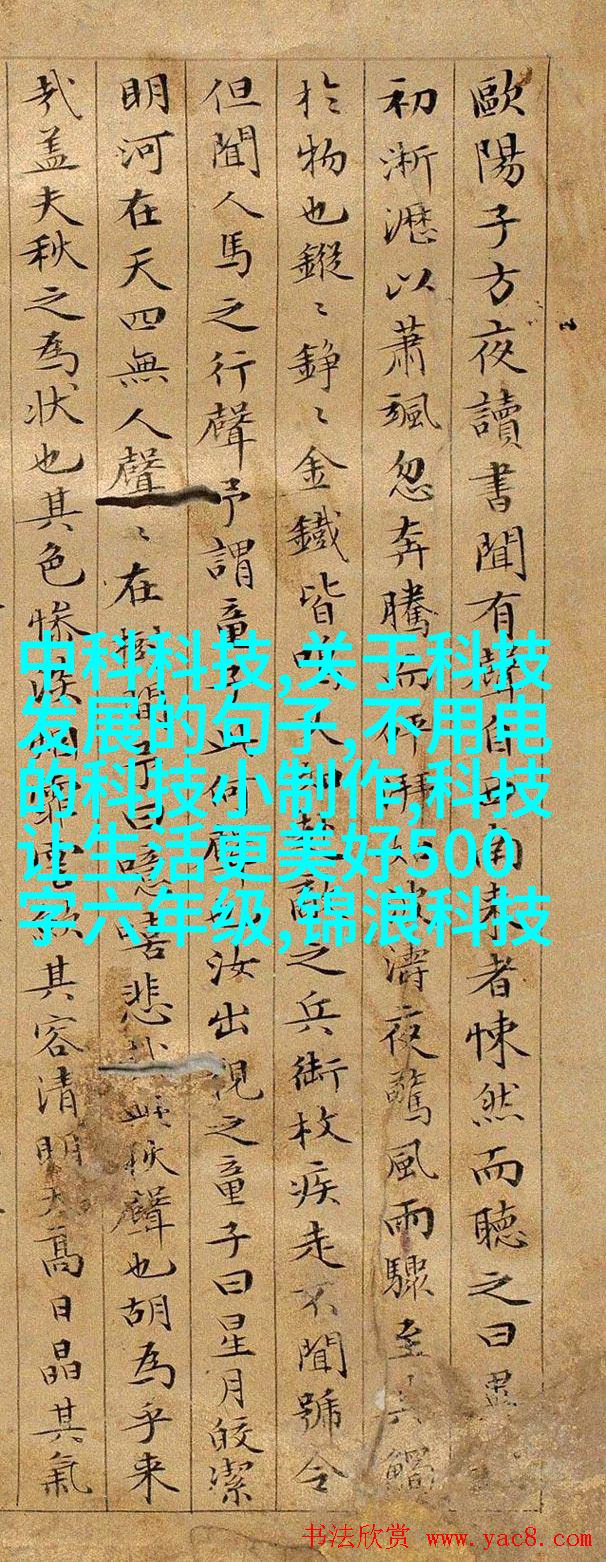 歐陽子方夜讀書聞有聲自西南来者悚然而聽之曰異
初淅瀝以蕭颯忽奔騰而砰湃如波濤夜驚風雨驟至其觸
於物也鏦〻錚〻金鐵皆鳴又如赴敵之兵銜枚疾走不聞號令
但聞人馬之行聲予謂童子此何聲也汝出視之童子曰星月皎潔
明河在天四無人聲〻在樹間予曰噫嘻悲哉此秋聲也胡為乎来
㢤盖夫秋之為狀也其色惨淡烟霏雲歛其容清明天高日晶其氣
中科科技,关于科技
发展的句子,不用电
的科技小制作,科技
让生活更美好500
字六年级,锦浪科技
书法欣赏 www.yac8.com